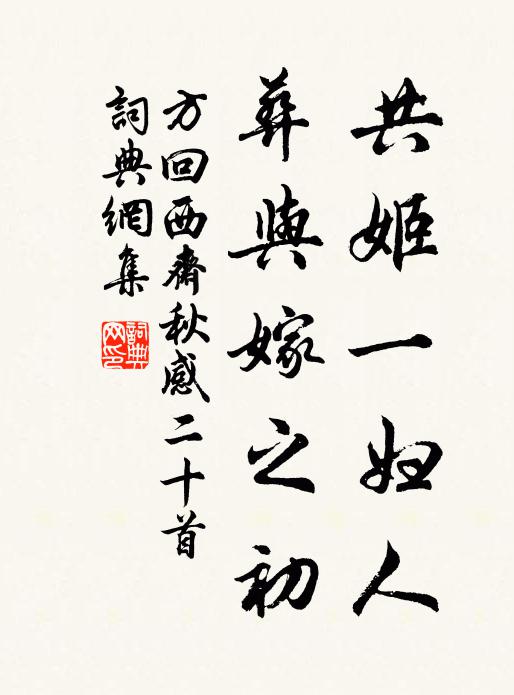 共姬一妇人
葬與嫁之初
方回西齋秋感二十首
詞典網集
詞典
网印